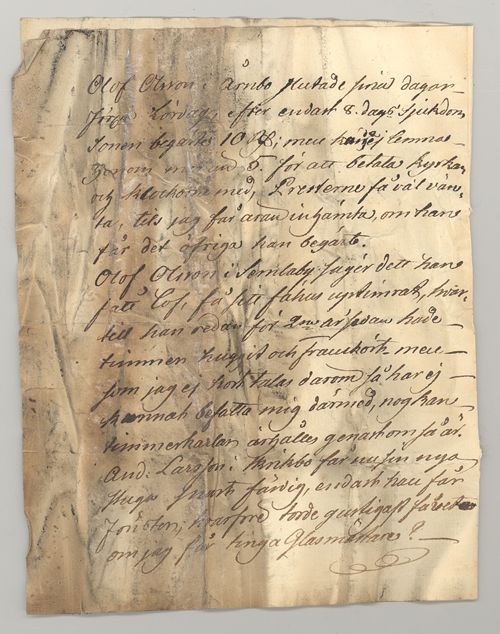 Olof Olsson i Årnbo slutade sina dagar
sistl. Lördag, efter endast 8. dag sjukdom
Sonen begärte 10 Rd; men
honom mer än 5. för att betala kyrkan
och klockorne med, Presterne få väl vän-
ta, tils jag får äran inhämta, om han
får det öfriga han begärte.
Olof Olsson i Semlaby säger dett han
få sitt fähus uptimrat, hvar-
till han redan för 2ne år sedan hade
timmer huggit och framkört, men
som jag ej hört talas darom så har ej
kunnat befatta mig därmed, nog kan
timmerkarlar
And: Larsson i får nu sin nya
stuga snart färdig, endast han får
torde gunstigast få veta
om jag får tinga Glasmästare?